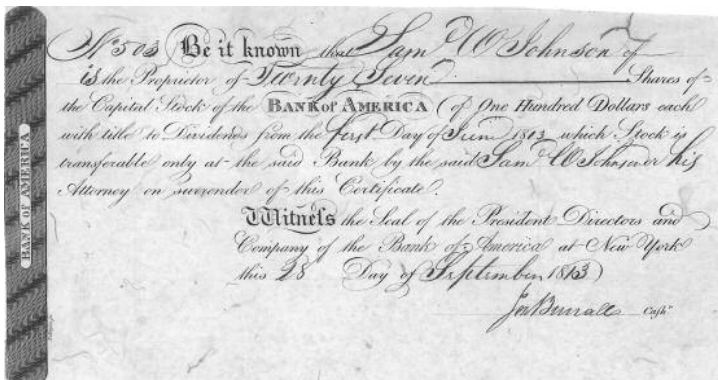 No 503 Be it known that Sam.l W Johnson of
is the Proprietor of Twenty Seven Shares of
the Capital Stock of the BANK of AMERICA (of One Hundred Dollars each
with title to Dividends from the first Day of June 1813 which Stock is
transferable only at the said Bank by the said Sam.l W Johnson or his
Attorney on surrender of this Certificate.
Witness the Seal of the President Directors and
Company of the Bank of America at New York
this 28 Day of September 1813)
Jon Burrall Cash.r
BANK of AMERICA